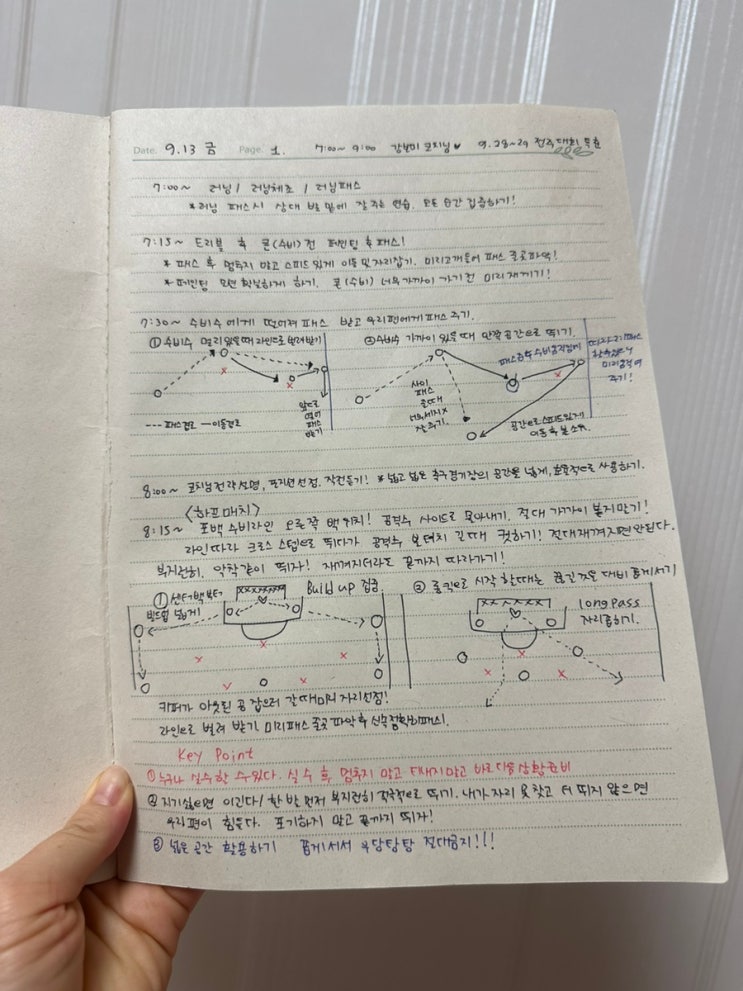 Date. 9.13 금 Page. 1. 7:00~ 9:00 강보미 코치님♥ 9.28~29 전주대회 특훈
7:00~ 러닝 / 러닝체조 / 러닝패스
* 러닝 패스시 상대 발 밑에 잘 주는 연습. 모든 순간 집중하기!
7:15~ 드리블 후 콘(수비)전 페인팅 후 패스!
* 패스 후 멈추지 말고 스피드있게 이동 및 자리잡기. 미리고개들어 패스 줄곳파악!
* 페인팅 모션 확실하게 하기. 콘(수비) 너무 가까이 가기전 미리제끼기!
7:30~ 수비수에게 떨어져 패스 받고 우리편에게 패스 주기.
① 수비수 멀리있을때 라인으로 벌려받기
② 수비수 가까이 있을 때 안쪽공간으로 뛰기.
--- 패스경로 — 이동경로
앞으로
패스
받기
사이
패스
줄때
너무세지X
잘주기.
패스
미리
주기!
공간으로 스피드있게
이동 후 볼 소유.
8:00~ 코치님전략설명, 포지션선정. 작전듣기! * 넓고 넓은 축구경기장의 공간을 넓게, 효율적으로 사용하기.
<하프매치>
8:15~ 포백 수비라인 오른쪽 백 위치! 공격수 사이드로 몰아내기. 절대 가까이 붙지말기!
라인따라 크로스 스텝으로 뛰다가 공격수 볼터치 길때 컷하기! 절대제껴지면안된다.
부지런히. 악착같이 뛰자! 제껴지더라도 끝까지 따라가기!
① 센터백부터
반드시 넓게
Build up 점검
② 롱킥으로 시작 할때는 끊길것을 대비 좁게서기
Long Pass
자리좁히기.
키퍼가 아웃된 공 잡으러 갈 때 미리 자리선점!
라인으로 벌려 받기. 미리패스 줄곳 파악 후 신속정확히패스.
Key Point
① 누구나 실수 할 수 있다. 실수 후 멈추지 말고 티내지말고 바로 다음상황준비
② 지기싫으면 이긴다/ 한 발 먼저 부지런히 적극적으로 뛰기. 내가 자리 못찾고 더 뛰지 않으면
우리편이 힘들다. 포기하지 말고 끝까지 뛰자!
③ 넓은 공간 활용하기 좁게서서 우당탕탕 절대금지!!!